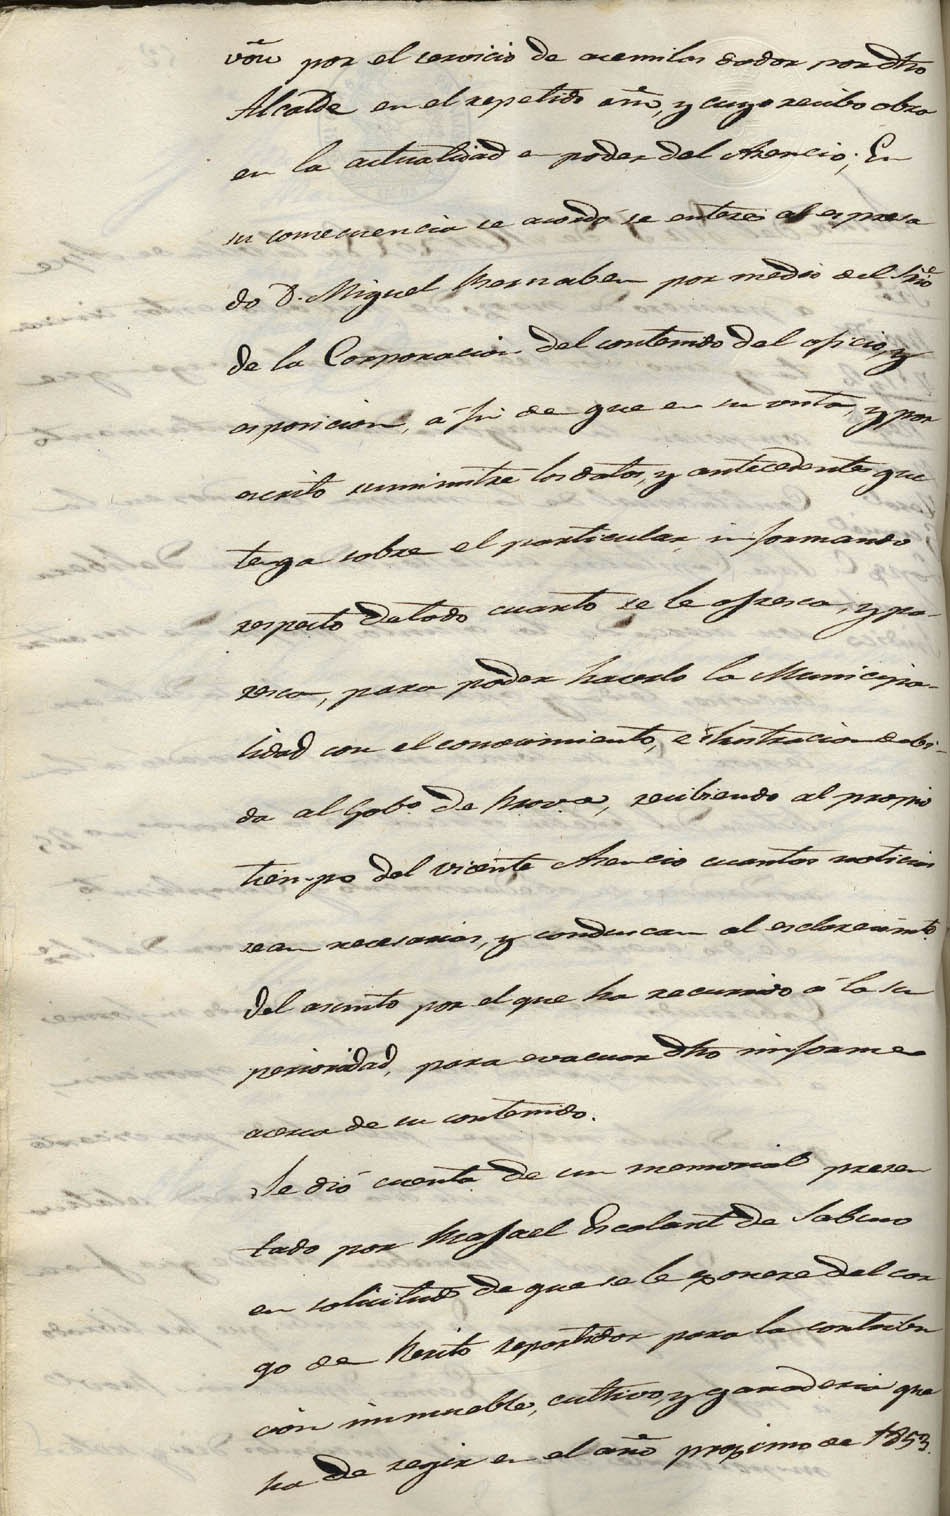 von por el servicio de acemilas dados por dho
Alcalde en el repetido año, y cuyo recibo obra
en la actualidad en poder del Asencio; En
su consecuencia se acordó se entere al espresa
do D. Miguel Bernabeu por medio del Srio
de la Corporacion del contenido del oficio, y
esposicion, á fin de que en su vista, y por
escrito suministre los datos, y antecedentes que
tenga sobre el particular, informando
respecto de todo cuanto se le ofresca, y pa-
resca, para poder hacerlo la Municipa-
lidad con el conocimiento, e ilustracion debi-
da al Gobo. de Prova, recibiendo al propio
tiempo del Vicente Asencio cuantas noticias
sean necesarias, y conduscan al esclarecimto.
del asunto por el que ha recurrido á la su
perioridad, para evacuar dho informe
acerca de su contenido.
Se dió cuenta de un memorial presen
tado por Rafael Escolant de Sabuco
en solicitud de que se le exonere del car
go de Perito repartidor para la contribu
cion inmueble, cultivo, y ganaderia que
ha de regir en el año proximo de 1853.